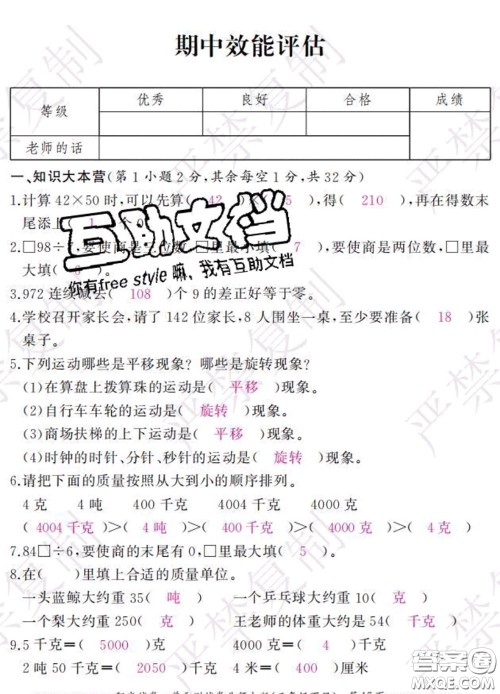 期中效能评估
等级 优秀 良好 合格 成绩
老师的话
一、知识大本营(第1小题2分,其余每空1分,共32分)
1.计算42×50时,可以先算( 42 )×( 5 ),得( 210 ),再在得数末
尾添上( 1 )个0
2.□98÷7,要使商是三位数,□里最小填( 7 ),要使商是两位数,□里最
大填(
3.972连续减去( 108 )个9的差正好等于零。
4.学校召开家长会,请了142位家长,8人围坐一桌,至少要准备( 18 )张
桌子。
5.下列运动哪些是平移现象?哪些是旋转现象?
(1)在算盘上拨算珠的运动是( 平移 )现象。
(2)自行车车轮的运动是( 旋转 )现象。
(3)商场扶梯的上下运动是( 平移 )现象。
(4)时钟的时针、分针、秒针的运动是( 旋转 )现象。
6.请把下面的质量按照从大到小的顺序排列。
4克 4吨 400千克 4004千克 4000克
(4004千克)>( 4吨 )>(400千克)>(4000克)>( 4克 )
7.84□÷6,要使商的末尾有0,□里最大填( 5 )。
8.在( )里填上合适的质量单位。
一头蓝鲸大约重35( 吨 ) 一个乒乓球大约重10( 克 )
一个梨大约重250( 克 ) 王老师的体重大约是54( 千克 )
9.5千克=( 5000 )克 4000克=( 4 )千克
2吨50千克=( 2050 )千克 4米=( 400 )厘米
互助文档
你有free style嘛、我有互助文档
严禁复制
答案圈
MXQE.COM